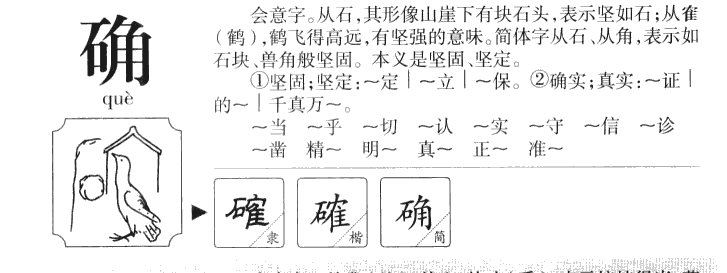 确
què
会意字。从石,其形像山崖下有块石头,表示坚如石;从隺
(鹤),鹤飞得高远,有坚强的意味。简体字从石、从角,表示如
石块、兽角般坚固。本义是坚固、坚定。
①坚固;坚定:~定|~立|~保。②确实;真实:~证|
的~|千真万~。
~当 ~乎 ~切 ~认 ~实 ~守 ~信 ~诊
~凿 精~ 明~ 真~ 正~ 准~
確 隶 確 楷 确 简